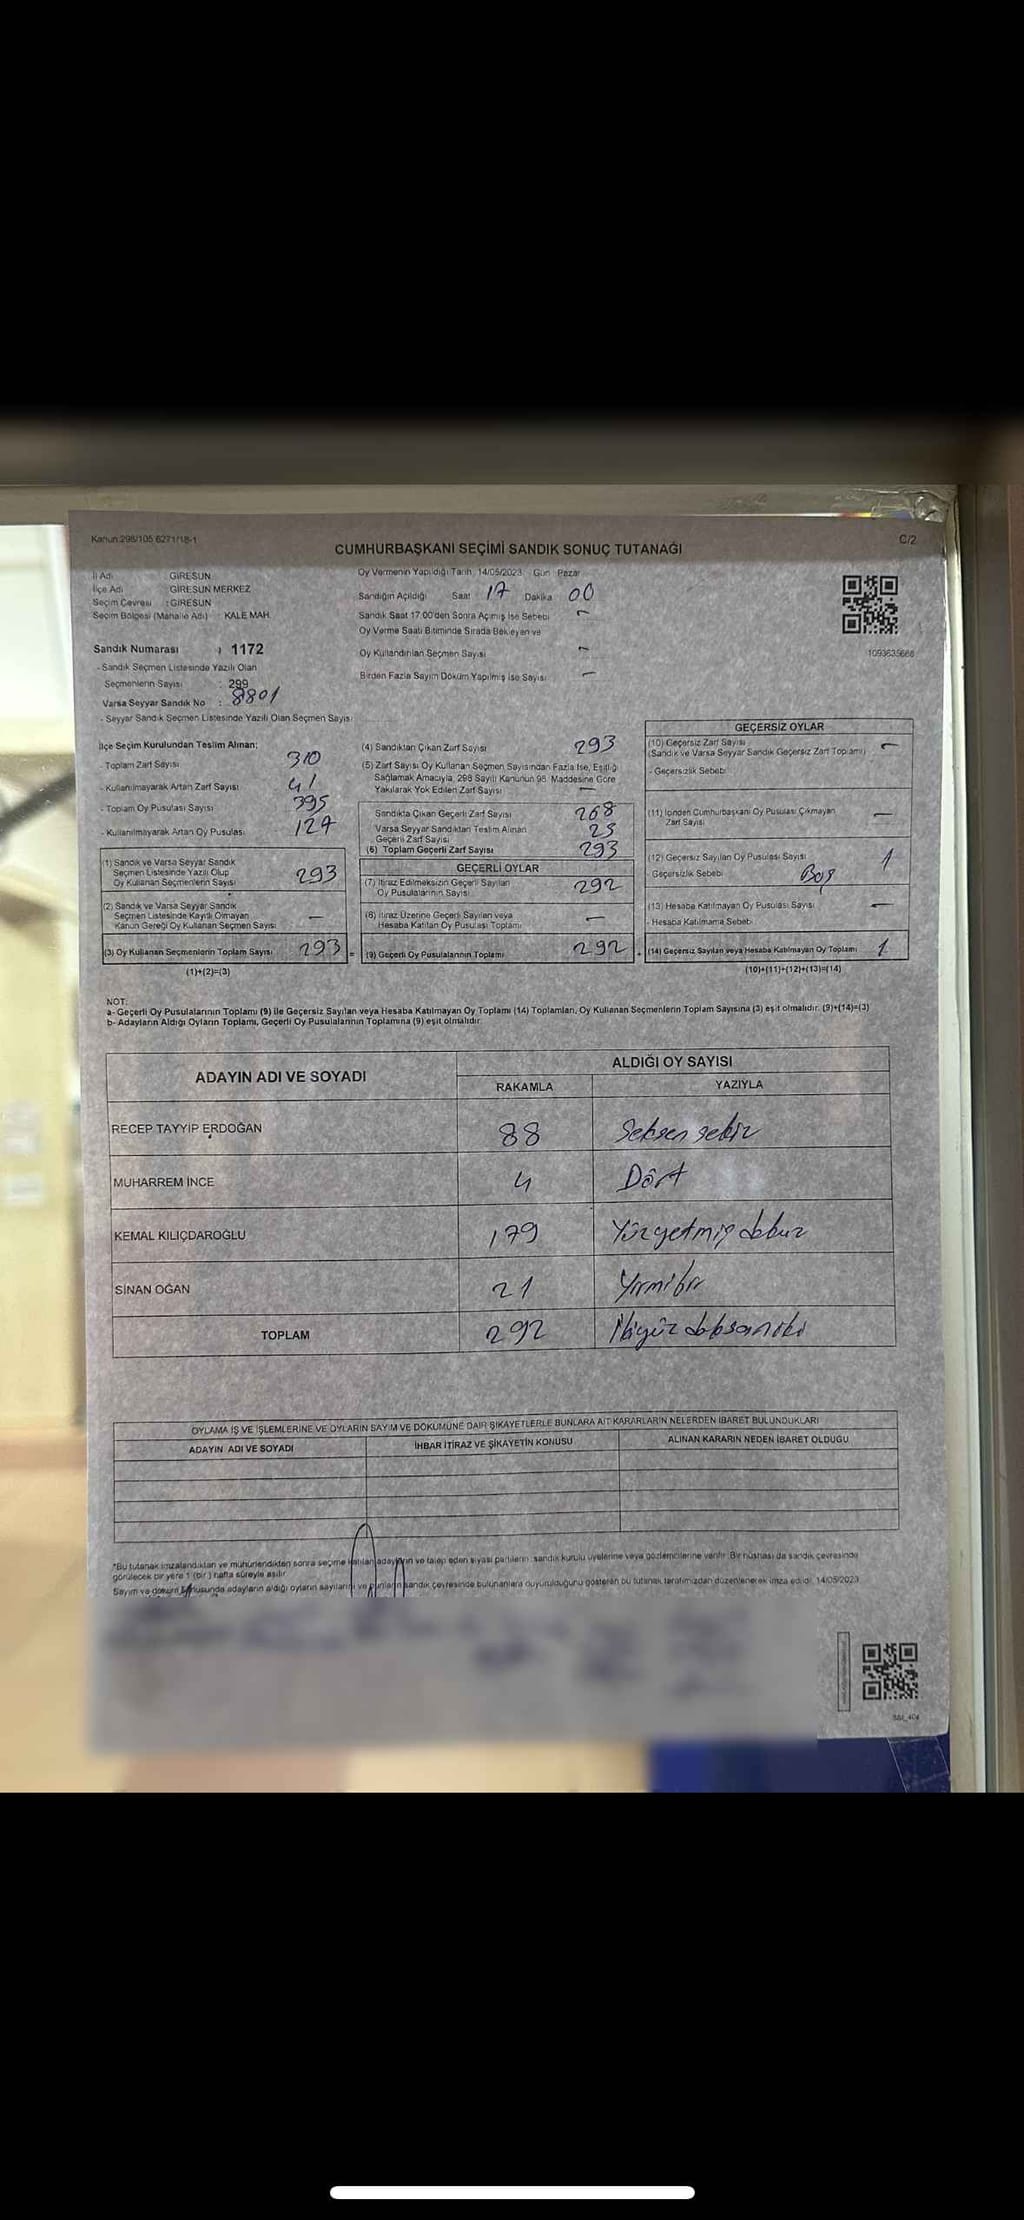 Kanun:298/105 6271/18-1
C/2
CUMHURBAŞKANI SEÇİMİ SANDIK SONUÇ TUTANAĞI
İl Adı GİRESUN
İlçe Adı GİRESUN MERKEZ
Seçim Çevresi : GİRESUN
Seçim Bölgesi (Mahalle Adı) : KALE MAH.
Oy Vermenin Yapıldığı Tarih 14/05/2023 Gün Pazar
Sandığın Açıldığı Saat 17 Dakika 00
Sandık Saat 17:00'den Sonra Açılmış İse Sebebi -
Oy Verme Saati Bitiminde Sırada Bekleyen ve
Oy Kullandırılan Seçmen Sayısı -
Birden Fazla Sayım Döküm Yapılmış İse Sayısı -
1093635668
Sandık Numarası : 1172
- Sandık Seçmen Listesinde Yazılı Olan
Seçmenlerin Sayısı : 299
Varsa Seyyar Sandık No : 8801
- Seyyar Sandık Seçmen Listesinde Yazılı Olan Seçmen Sayısı
İlçe Seçim Kurulundan Teslim Alınan;
- Toplam Zarf Sayısı 310
- Kullanılmayarak Artan Zarf Sayısı 41
- Toplam Oy Pusulası Sayısı 395
- Kullanılmayarak Artan Oy Pusulası 127
(1) Sandık ve Varsa Seyyar Sandık
Seçmen Listesinde Yazılı Olup
Oy Kullanan Seçmenlerin Sayısı 293
(2) Sandık ve Varsa Seyyar Sandık
Seçmen Listesinde Kayıtlı Olmayan
Kanun Gereği Oy Kullanan Seçmen Sayısı -
(3) Oy Kullanan Seçmenlerin Toplam Sayısı 293 =
(1)+(2)=(3)
(4) Sandıktan Çıkan Zarf Sayısı 293
(5) Zarf Sayısı Oy Kullanan Seçmen Sayısından Fazla İse, Eşitliği
Sağlamak Amacıyla, 298 Sayılı Kanunun 98. Maddesine Göre
Yakılarak Yok Edilen Zarf Sayısı -
Sandıkta Çıkan Geçerli Zarf Sayısı 268
Varsa Seyyar Sandıktan Teslim Alınan
Geçerli Zarf Sayısı 25
(6) Toplam Geçerli Zarf Sayısı 293
GEÇERLİ OYLAR
(7) İtiraz Edilmeksizin Geçerli Sayılan
Oy Pusulalarının Sayısı 292
(8) İtiraz Üzerine Geçerli Sayılan veya
Hesaba Katılan Oy Pusulası Toplamı -
(9) Geçerli Oy Pusulalarının Toplamı 292 +
GEÇERSİZ OYLAR
(10) Geçersiz Zarf Sayısı
(Sandık ve Varsa Seyyar Sandık Geçersiz Zarf Toplamı) -
- Geçersizlik Sebebi
(11) İçinden Cumhurbaşkanı Oy Pusulası Çıkmayan
Zarf Sayısı -
(12) Geçersiz Sayılan Oy Pusulası Sayısı 1
- Geçersizlik Sebebi Boş
(13) Hesaba Katılmayan Oy Pusulası Sayısı -
- Hesaba Katılmama Sebebi
(14) Geçersiz Sayılan veya Hesaba Katılmayan Oy Toplamı 1
(10)+(11)+(12)+(13)=(14)
NOT:
a- Geçerli Oy Pusulalarının Toplamı (9) ile Geçersiz Sayılan veya Hesaba Katılmayan Oy Toplamı (14) Toplamları, Oy Kullanan Seçmenlerin Toplam Sayısına (3) eşit olmalıdır. (9)+(14)=(3)
b- Adayların Aldığı Oyların Toplamı, Geçerli Oy Pusulalarının Toplamına (9) eşit olmalıdır.
ADAYIN ADI VE SOYADI
ALDIĞI OY SAYISI
RAKAMLA YAZIYLA
RECEP TAYYİP ERDOĞAN 88 Seksen sekiz
MUHARREM İNCE 4 Dört
KEMAL KILIÇDAROĞLU 179 Yüzyetmiş dokuz
SİNAN OĞAN 21 Yirmibir
TOPLAM 292 İkiyüz doksaniki
OYLAMA İŞ VE İŞLEMLERİNE VE OYLARIN SAYIM VE DÖKÜMÜNE DAİR ŞİKAYETLERLE BUNLARA AİT KARARLARIN NELERDEN İBARET BULUNDUKLARI
ADAYIN ADI VE SOYADI İHBAR İTİRAZ VE ŞİKAYETİN KONUSU ALINAN KARARIN NEDEN İBARET OLDUĞU
*Bu tutanak imzalandıktan ve mühürlendikten sonra seçime katılan adayların ve talep eden siyasi partilerin sandık kurulu üyelerine veya gözlemcilerine verilir. Bir nüshası da sandık çevresinde
görülecek bir yere 1 (bir) hafta süreyle asılır.
Sayım ve döküm sonusunda adayların aldığı oyların sayılarını ve bunların sandık çevresinde bulunanlara duyurulduğunu gösteren bu tutanak tarafımızdan düzenlenerek imza edildi. 14/05/2023